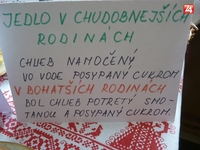 JEDLO V CHUDOBNEJŠÍCH
RODINÁCH
CHLIEB NAMOČENÝ
VO VODE POSYPANÝ CUKROM
V BOHATŠÍCH RODINÁCH
BOL CHLIEB POTRETÝ SMO-
TANOU A POSYPANÝ CUKROM.